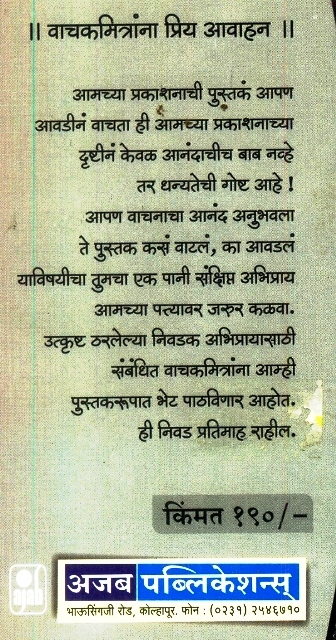 || वाचकमित्रांना प्रिय आवाहन ||
आमच्या प्रकाशनाची पुस्तकं आपण
आवडीनं वाचता ही आमच्या प्रकाशनाच्या
दृष्टीनं केवळ आनंदाचीच बाब नव्हे
तर धन्यतेची गोष्ट आहे !
आपण वाचनाचा आनंद अनुभवला
ते पुस्तक कसं वाटलं, का आवडलं
याविषयीचा तुमचा एक पानी संक्षिप्त अभिप्राय
आमच्या पत्त्यावर जरुर कळवा.
उत्कृष्ट ठरलेल्या निवडक अभिप्रायासाठी
संबंधित वाचकमित्रांना आम्ही
पुस्तकरूपात भेट पाठविणार आहोत.
ही निवड प्रतिमाह राहील.
किंमत १९०/–
अजब पब्लिकेशन्स्
भाऊसिंगजी रोड, कोल्हापूर. फोन : (०२३१) २५४६७१०
ajab